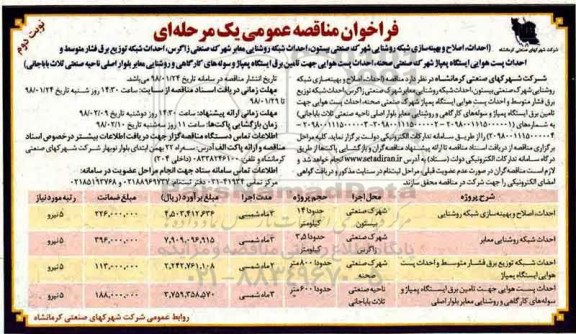 نوبت دوم
فراخوان مناقصه عمومی یک مرحله‌ای
شرکت شهرکهای صنعتی کرمانشاه
(احداث، اصلاح و بهینه‌سازی شبکه روشنایی شهرک صنعتی بیستون، احداث شبکه روشنایی معابر شهرک صنعتی زاگرس، احداث شبکه توزیع برق فشار متوسط و
احداث پست هوایی ایستگاه پمپاژ شهرک صنعتی صحنه، احداث پست هوایی جهت تامین برق ایستگاه پمپاژ و سوله‌های کارگاهی و روشنایی معابر بلوار اصلی ناحیه صنعتی ثلاث باباجانی)
شرکت شهرکهای صنعتی کرمانشاه در نظر دارد مناقصه احداث، اصلاح و بهینه‌سازی شبکه
روشنایی شهرک صنعتی بیستون، احداث شبکه روشنایی معابر شهرک صنعتی زاگرس، احداث شبکه توزیع
برق فشار متوسط و احداث پست هوایی ایستگاه پمپاژ شهرک صنعتی صحنه، احداث پست هوایی جهت
تامین برق ایستگاه پمپاژ و سوله‌های کارگاهی و روشنایی معابر بلوار اصلی ناحیه صنعتی ثلاث باباجانی)
را از طریق سامانه تدارکات الکترونیکی دولت برگزار نماید. کلیه مراحل
برگزاری مناقصه از دریافت اسناد مناقصه تا ارائه پیشنهاد مناقصه گران و بازگشایی پاکت‌ها از طریق
درگاه سامانه تدارکات الکترونیکی دولت (ستاد) به آدرس www.setadiran.ir انجام خواهد شد و
لازم است مناقصه گران در صورت عدم عضویت قبلی، مراحل ثبت‌نام در سایت مذکور و دریافت گواهی
امضای الکترونیکی را جهت شرکت در مناقصه محقق سازند.
تاریخ انتشار مناقصه در سامانه تاریخ ۹۸/۰۱/۲۴ می‌باشد.
مهلت زمانی دریافت اسناد مناقصه از سایت: ساعت ۱۴:۳۰ روز شنبه تاریخ ۹۸/۰۱/۲۴
تا ۹۸/۰۱/۲۹
مهلت زمانی ارائه پیشنهاد: ساعت ۱۴:۳۰ روز دوشنبه تاریخ ۹۸/۰۲/۰۹
زمان بازگشایی پاکت‌ها: ساعت ۱۱ روز سه‌شنبه تاریخ ۹۸/۰۲/۱۰
اطلاعات تماس دستگاه مناقصه گزار جهت دریافت اطلاعات بیشتر در خصوص اسناد
مناقصه و ارائه پاکت الف آدرس: سه‌راه ۲۲ بهمن ابتدای بلوار نوبهار شرکت شهرکهای صنعتی
کرمانشاه و تلفن: ۰۸۳۳۸۲۴۶۱۰۰ (داخلی ۲۰۴)
اطلاعات تماس سامانه ستاد جهت انجام مراحل عضویت در سامانه:
مرکز تماس ۴۱۹۳۴-۰۲۱ دفتر ثبت‌نام ۰۲۱۸۸۹۶۹۷۳۷ و ۰۲۱۸۵۱۹۳۷۶۸
شرح پروژه | محل اجرا | حجم پروژه | مدت اجرا | مبلغ برآورد (ریال) | مبلغ ضمانت | رتبه مورد نیاز
احداث، اصلاح و بهینه‌سازی شبکه روشنایی | شهرک صنعتی بیستون | حدود ۱۴ کیلومتر | ۳ ماه شمسی | ۴,۵۰۳,۴۱۲,۶۳۶ | ۲۲۶,۰۰۰,۰۰۰ | ۵ نیرو
احداث شبکه روشنایی معابر | شهرک صنعتی زاگرس | حدود ۳,۵ کیلومتر | ۳ ماه شمسی | ۷,۹۰۹,۰۹۶,۹۱۵ | ۳۹۶,۰۰۰,۰۰۰ | ۵ نیرو
احداث شبکه توزیع برق فشار متوسط و احداث پست هوایی ایستگاه پمپاژ | شهرک صنعتی صحنه | حدود ۸۰۰ متر | ۳ ماه شمسی | ۲,۲۴۲,۷۶۱,۱۰۸ | ۱۱۳,۰۰۰,۰۰۰ | ۵ نیرو
احداث پست هوایی جهت تامین برق ایستگاه پمپاژ و سوله‌های کارگاهی و روشنایی معابر بلوار اصلی | ناحیه صنعتی ثلاث باباجانی | حدود ۶۰۰ متر | ۳ ماه شمسی | ۳,۷۵۹,۳۵۸,۵۷۰ | ۱۸۸,۰۰۰,۰۰۰ | ۵ نیرو
۰۲۱-۸۸۳۴۹۶۷۰
روابط عمومی شرکت شهرکهای صنعتی کرمانشاه